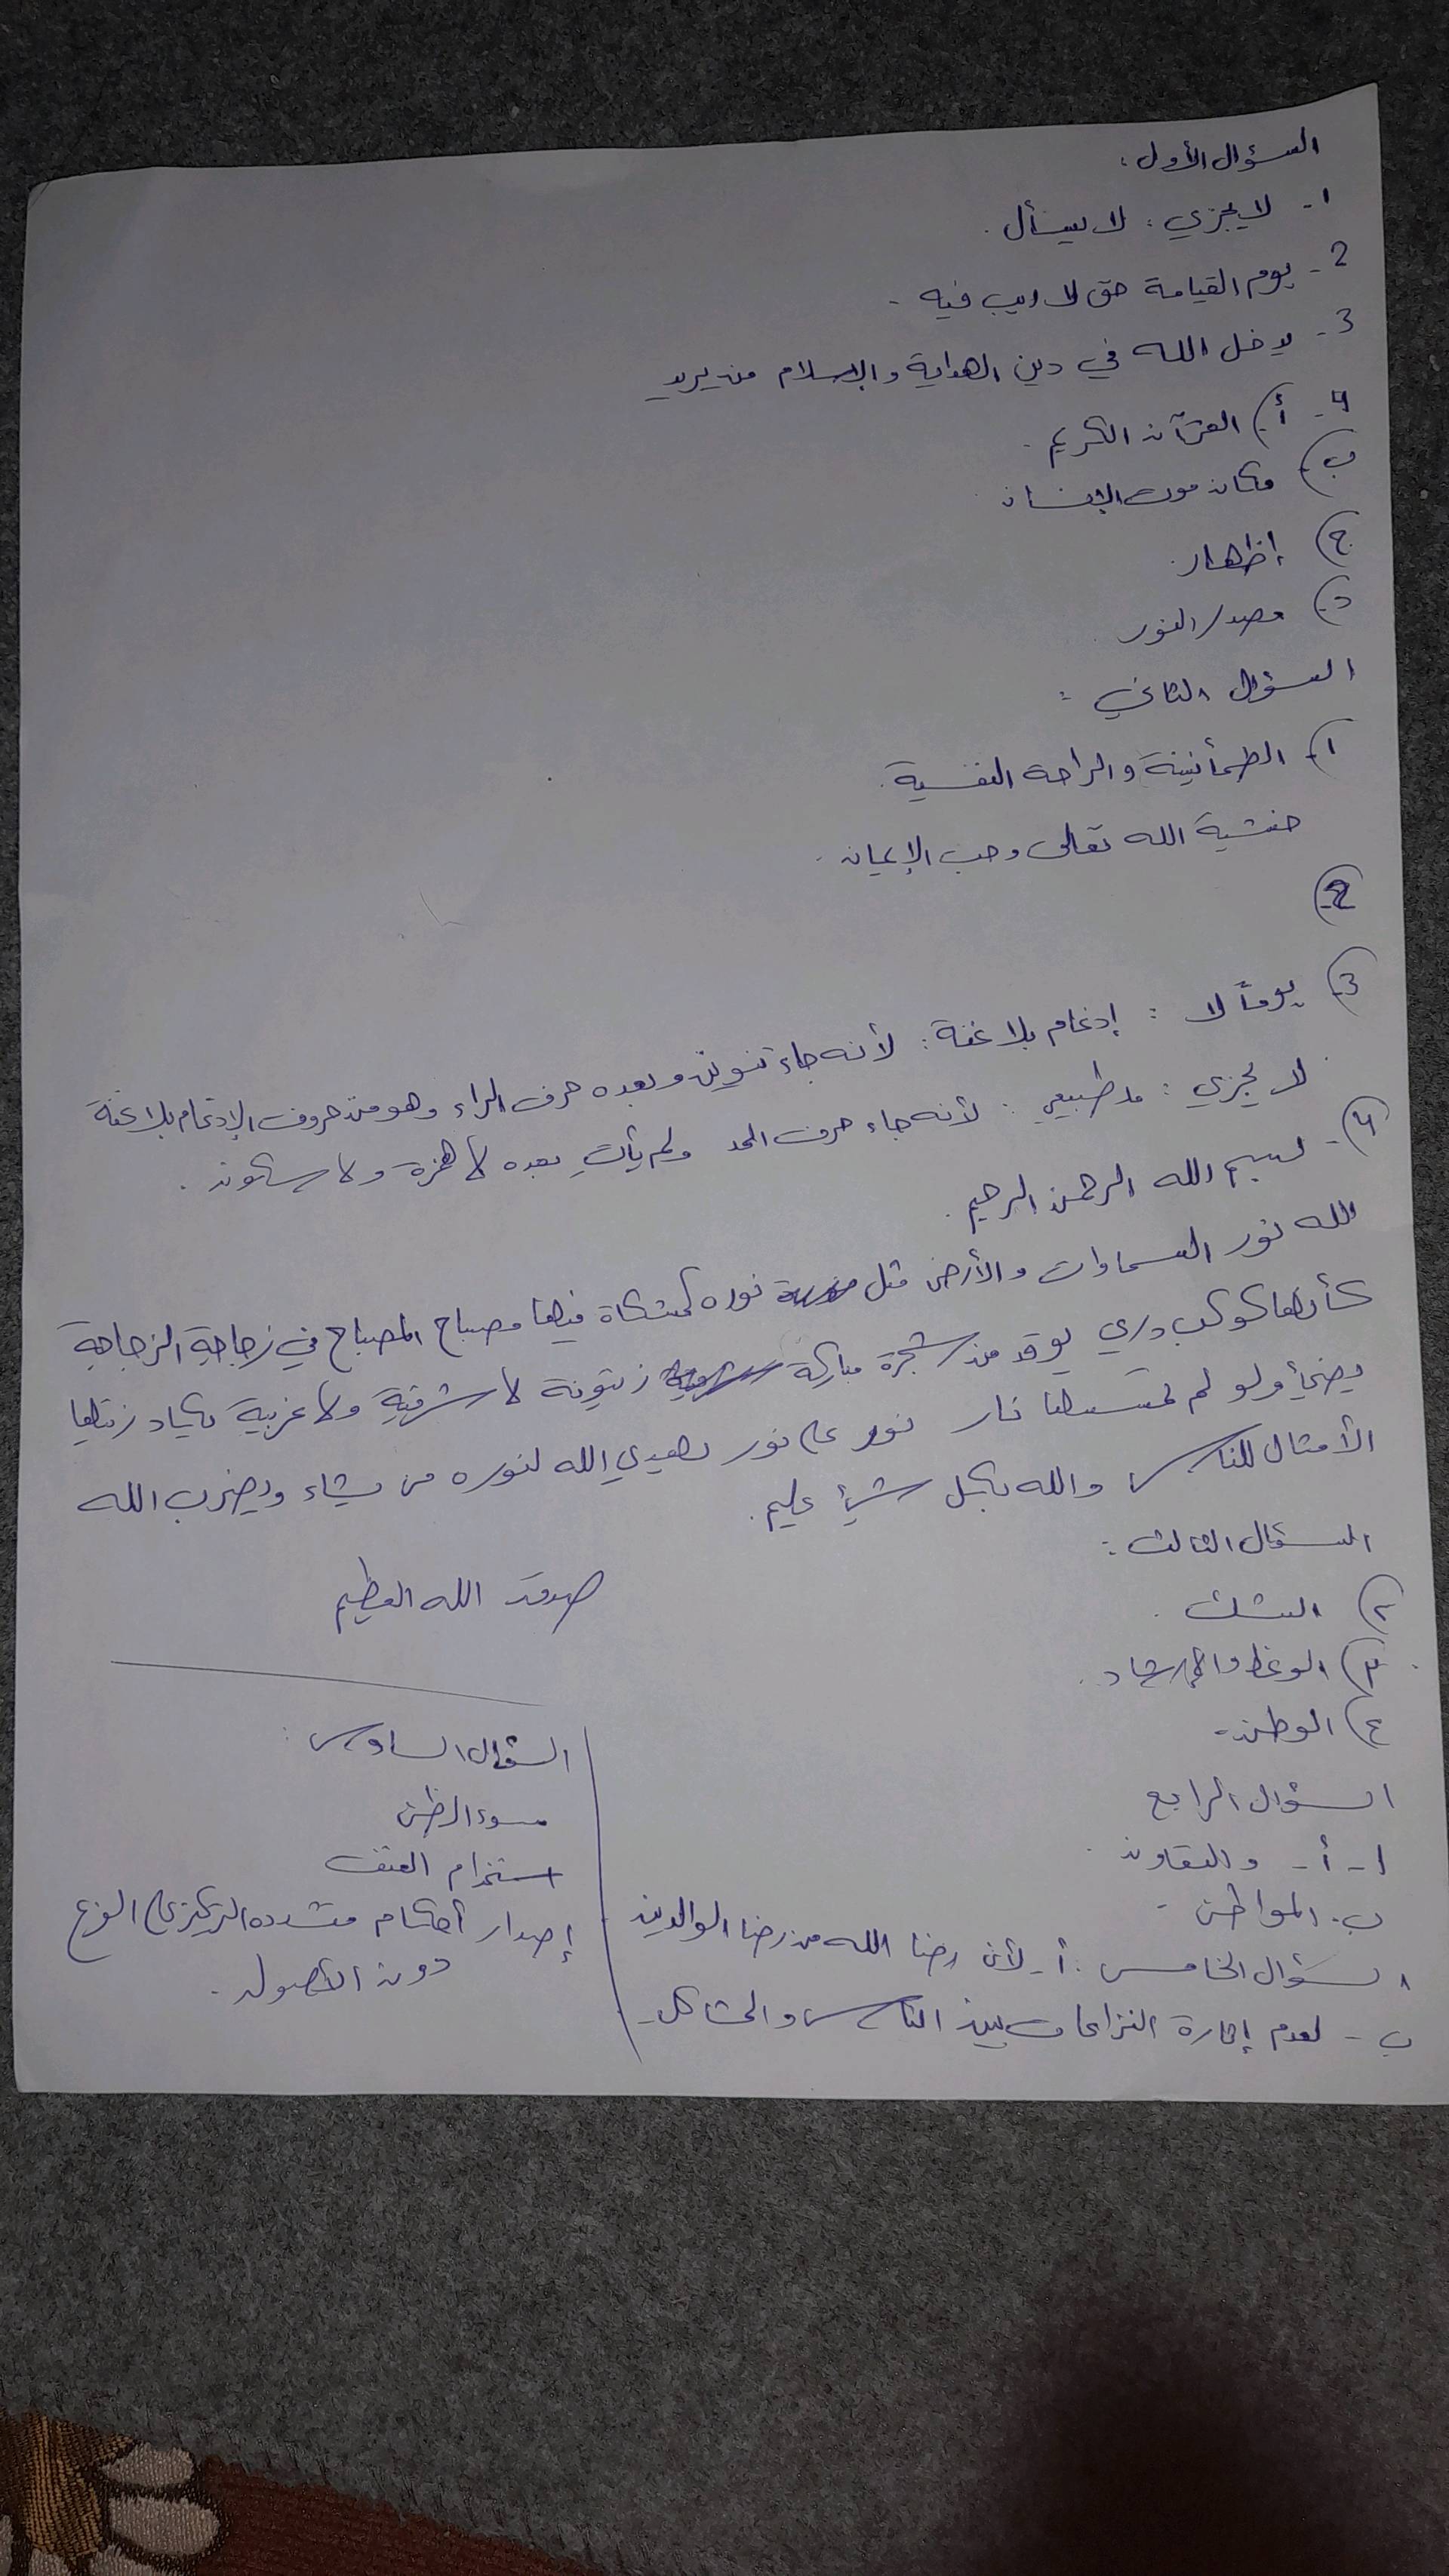 السؤال الأول :
1- لا يجزي : لا يسأل .
2- يوم القيامة حق لا ريب فيه .
3- يدخل الله في دين الهداية والإسلام من يريد
4- أ) القرآن الكريم .
ب) مكان موت الإنسان
ج) إظهار .
د) مصدر النور .
السؤال الثاني :
1) الطمأنينة والراحة النفسية .
خشية الله تعالى وحب الإيمان .
2)
3) يوماً لا : إدغام بلا غنة : لأنه جاء تنوين وبعده حرف الراء وهو من حروف الإدغام بلا غنة
لا يجزي : مد طبيعي : لأنه جاء حرف المد ولم يأتِ بعده لا همزة ولا سكون .
4)- بسم الله الرحمن الرحيم .
الله نور السماوات والأرض مثل نوره كمشكاة فيها مصباح المصباح في زجاجة الزجاجة
كأنها كوكب دري يوقد من شجرة مباركة زيتونة لا شرقية ولا غربية يكاد زيتها
يضيئ ولو لم تمسسها نار نور على نور يهدي الله لنوره من يشاء ويضرب الله
الأمثال للناس والله بكل شيئ عليم .
صدق الله العظيم
السؤال الثالث :
2) الشك .
3) الوعظ والإرشاد .
4) الوطن -
السؤال الرابع
1- أ- والتعاون .
ب. المواطن -
السؤال الخامس : أ- لأن رضا الله من رضا الوالدين
ب - لعدم إثارة النزاعات بين الناس والمشاكل -
السؤال السادس :
سوء الظن
استخدام العنف
إصدار أحكام متشدده التركيز على الفرع
دون الأصول .